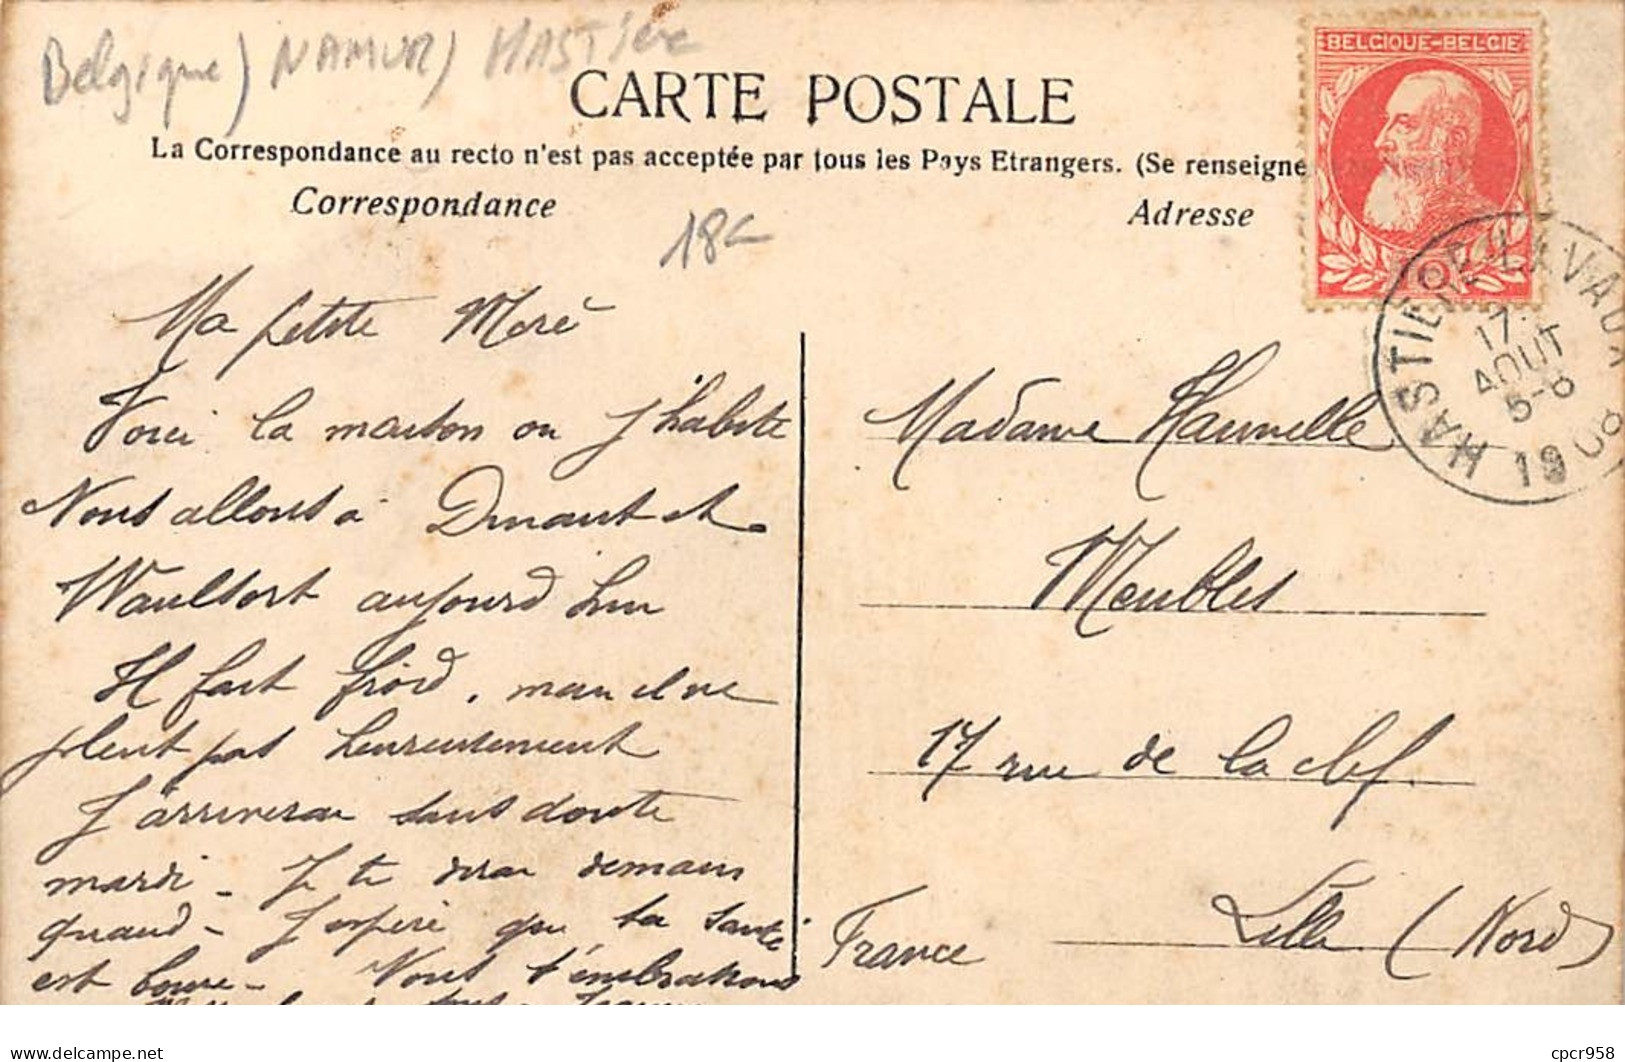 Belgique) NAMUR) HASTière
BELGIQUE-BELGIE
CARTE POSTALE
La Correspondance au recto n'est pas acceptée par tous les Pays Etrangers. (Se renseigne
Correspondance
Adresse
18c
10
HASTIERE-LAVAUX
17
AOUT
5-6
1908
Ma petite Meré
Voici la maison ou j'habite
Nous allons à Dinant et
Waulsort aujourd hui
Il fait froid, mais il ne
pleut pas heureusement
J'arriverai sans doute
mardi - Je te dirai demain
quand - J'espère que ta santé
est bonne - Nous t'embrassons
tous
Madame Hannelle
Meubles
17 rue de la clef.
Lille (Nord)
France
cpcr958